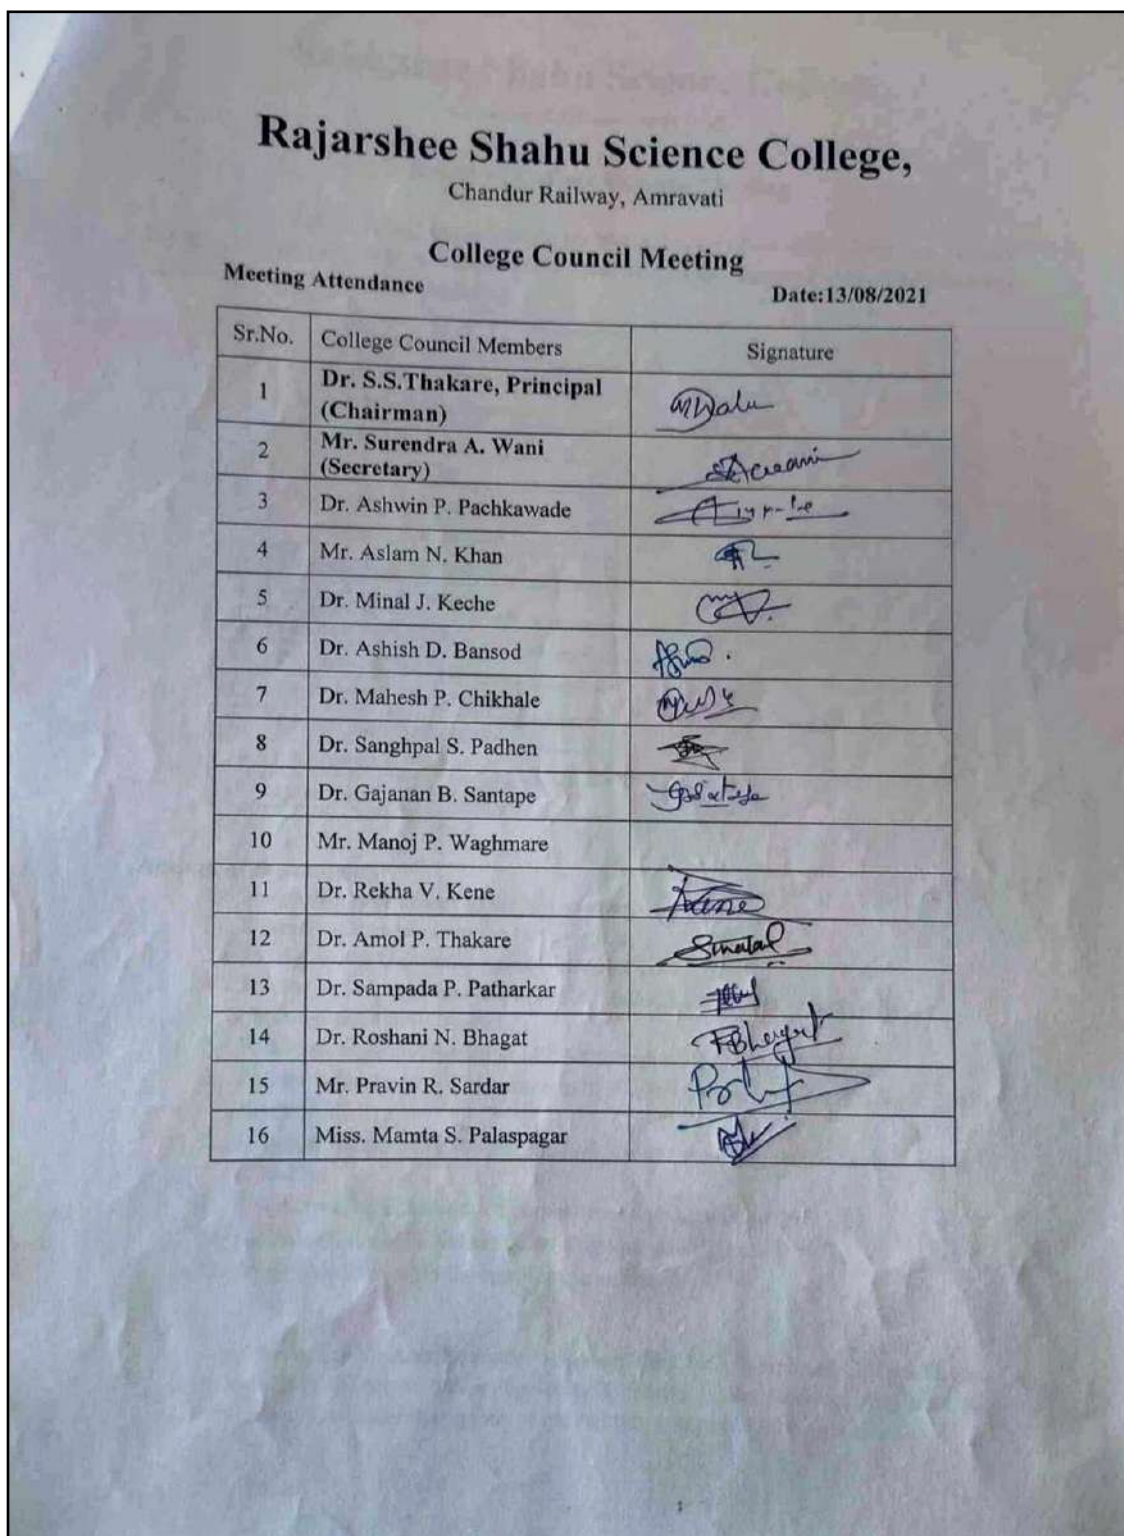 Rajarshee Shahu Science College,
Chandur Railway, Amravati
College Council Meeting
Meeting Attendance Date:13/08/2021
Sr.No. College Council Members Signature
1 Dr. S.S.Thakare, Principal
(Chairman)
2 Mr. Surendra A. Wani
(Secretary)
3 Dr. Ashwin P. Pachkawade
4 Mr. Aslam N. Khan
5 Dr. Minal J. Keche
6 Dr. Ashish D. Bansod
7 Dr. Mahesh P. Chikhale
8 Dr. Sanghpal S. Padhen
9 Dr. Gajanan B. Santape
10 Mr. Manoj P. Waghmare
11 Dr. Rekha V. Kene
12 Dr. Amol P. Thakare
13 Dr. Sampada P. Patharkar
14 Dr. Roshani N. Bhagat RBhagat
15 Mr. Pravin R. Sardar
16 Miss. Mamta S. Palaspagar
1